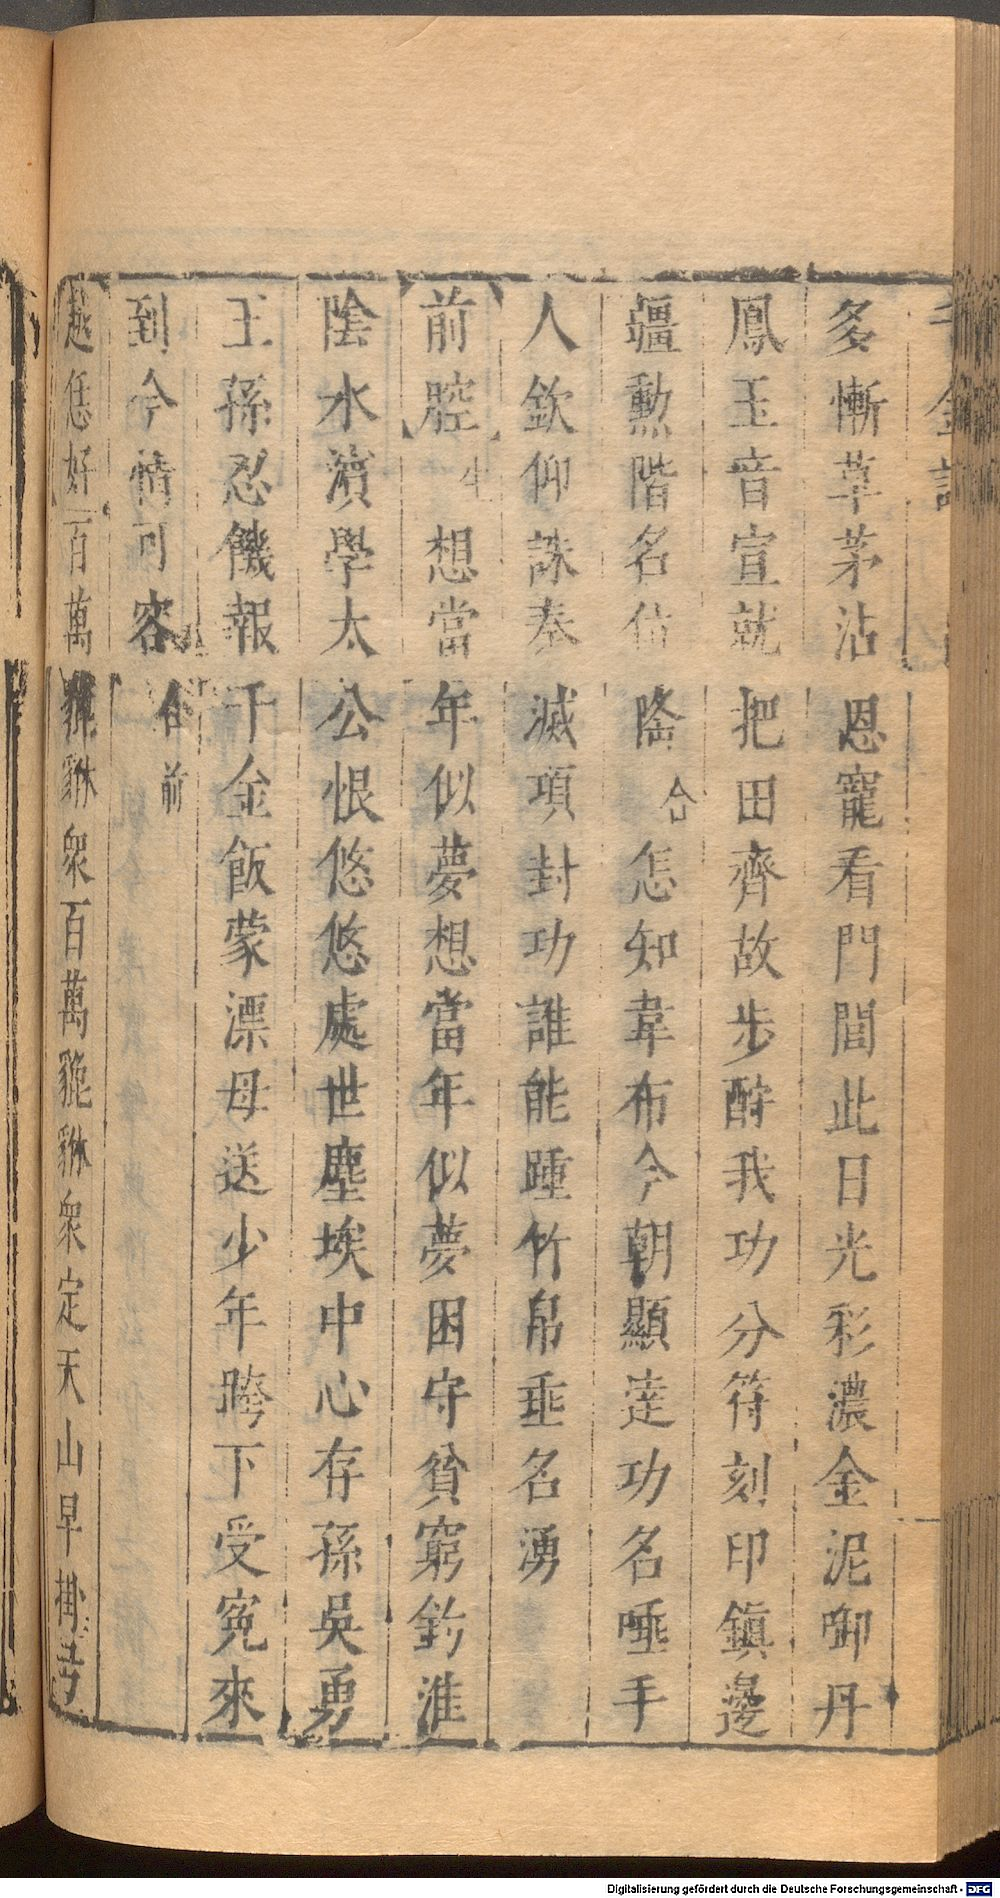 千金記
多慚草茅沾恩寵看門閭此日光彩濃金泥御丹
鳳玉音宣就把田齊故步酧我功分符刻印鎮邊
疆勳階名位隆合怎知韋布今朝顯達功名唾手
人欽仰誅秦滅項封功誰能踵竹帛垂名湧
前腔生想當年似夢想當年似夢困守貧窮釣淮
陰水濵學太公恨悠悠處世塵埃中心存孫吳勇
王孫忍饑報千金飯蒙漂母送少年胯下受寃來
到今情可容合前
越恁好百萬貔貅衆百萬貔貅衆定天山早掛弓
Digitalisierung gefördert durch die Deutsche Forschungsgemeinschaft - DFG